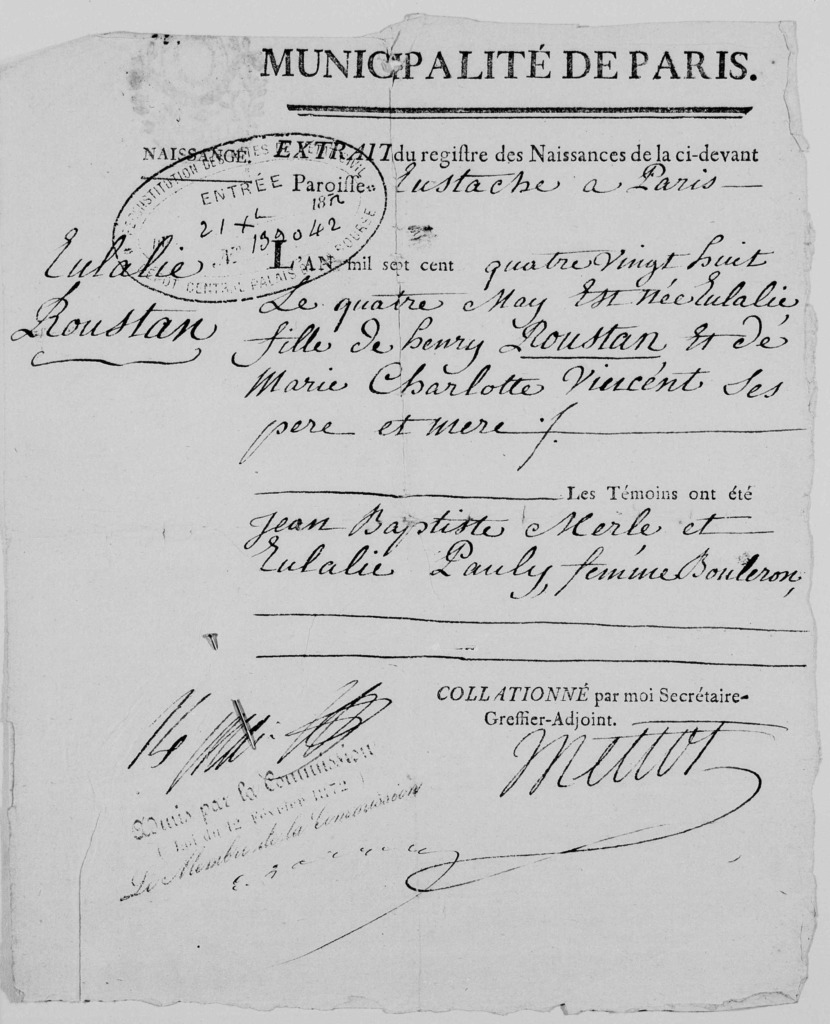 MUNICIPALITÉ DE PARIS.
NAISSANCE. EXTRAIT du registre des Naissances de la ci-devant
Paroisse Eustache a Paris
RECONSTITUTION DES ACTES DE L'ETAT CIVIL
ENTRÉE
21 Xbre 1872
N° 139042
DEPOT CENTRAL PALAIS DE LA BOURSE
Eulalie
Roustan
L'AN mil sept cent quatre vingt huit
Le quatre May Est née Eulalie
fille de henry Roustan Et dé
Marie Charlotte Vincént Ses
pere et mere
Les Témoins ont été
Jean Baptiste Merle et
Eulalie Pauly, femme Bouleron,
COLLATIONNÉ par moi Secrétaire-
Greffier-Adjoint.
Mettot
Admis par la Commission
(Loi du 12 Février 1872)
Le Membre de la Commission